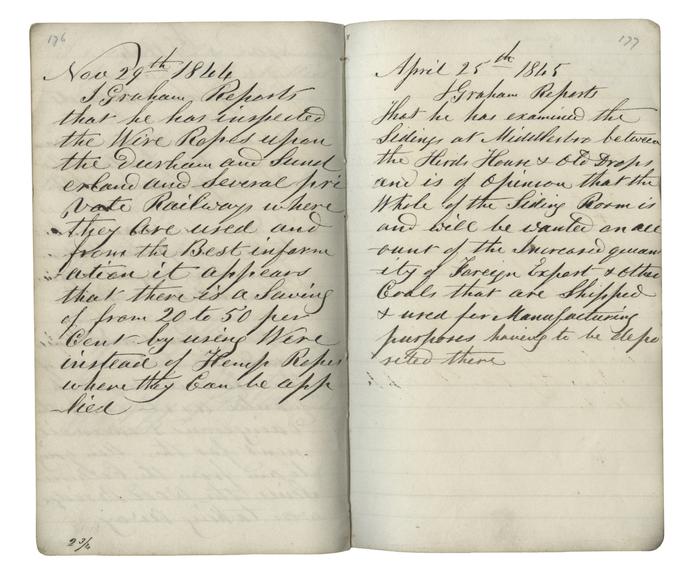 176
Nov 29th 1844
J Graham Reports
that he has inspected
the Wire Ropes upon
the Durham and Sund
erland and Several pri
vate Railways where
they are used and
from the Best inform
ation it appears
that there is a Saving
of from 20 to 50 per
Cent by using Wire
instead of Hemp Ropes
where they Can be app
lied
177
April 25th 1845
J Graham Reports
that he has examined the
Sidings at Middlesbro between
the Herds House & Old Drops
and is of Opinion that the
Whole of the Siding Room is
and will be wanted on acc
ount of the Increased quant
ity of Foreign Export & other
Coals that are Shipped
& used for Manufacturing
purposes having to be depo
sited there